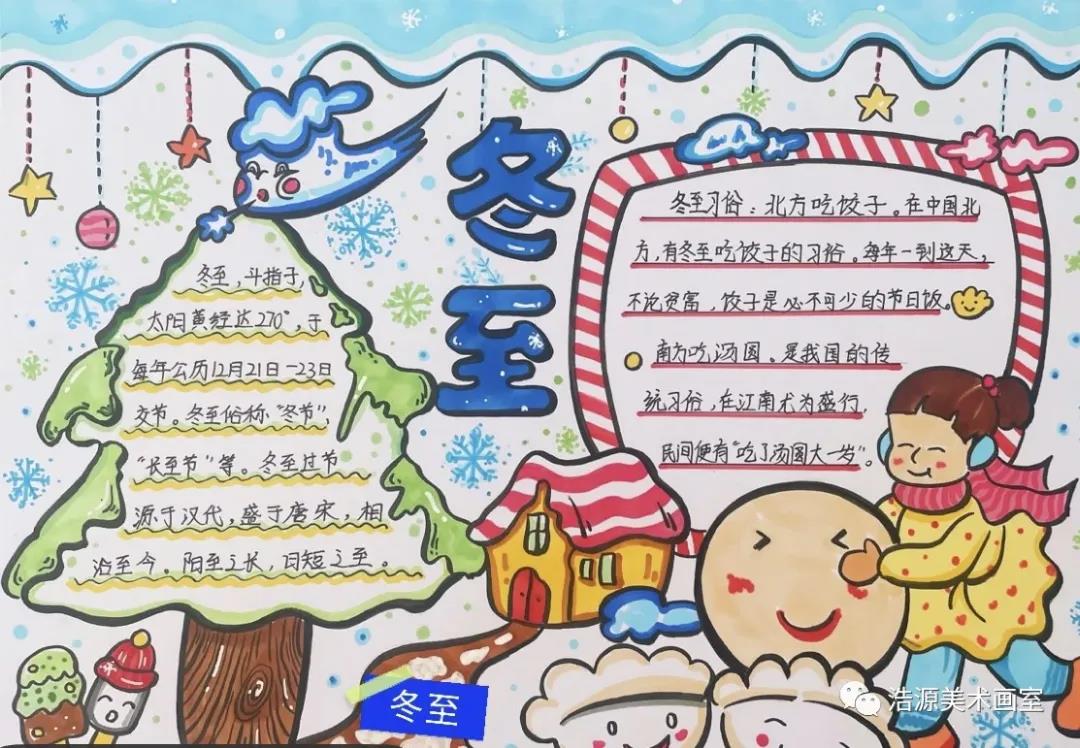 冬至
冬至，斗指子，
太阳黄经达270°，于
每年公历12月21日-23日
交节。冬至俗称"冬节"，
"长至节"等。冬至过节
源于汉代，盛于唐宋，相
沿至今。阳至之长，日短之至。
冬至习俗：北方吃饺子。在中国北
方，有冬至吃饺子的习俗。每年一到这天，
不论贫富，饺子是必不可少的节日饭。
南方吃汤圆。是我国的传
统习俗，在江南尤为盛行，
民间便有"吃了汤圆大一岁"。
冬至
浩源美术画室